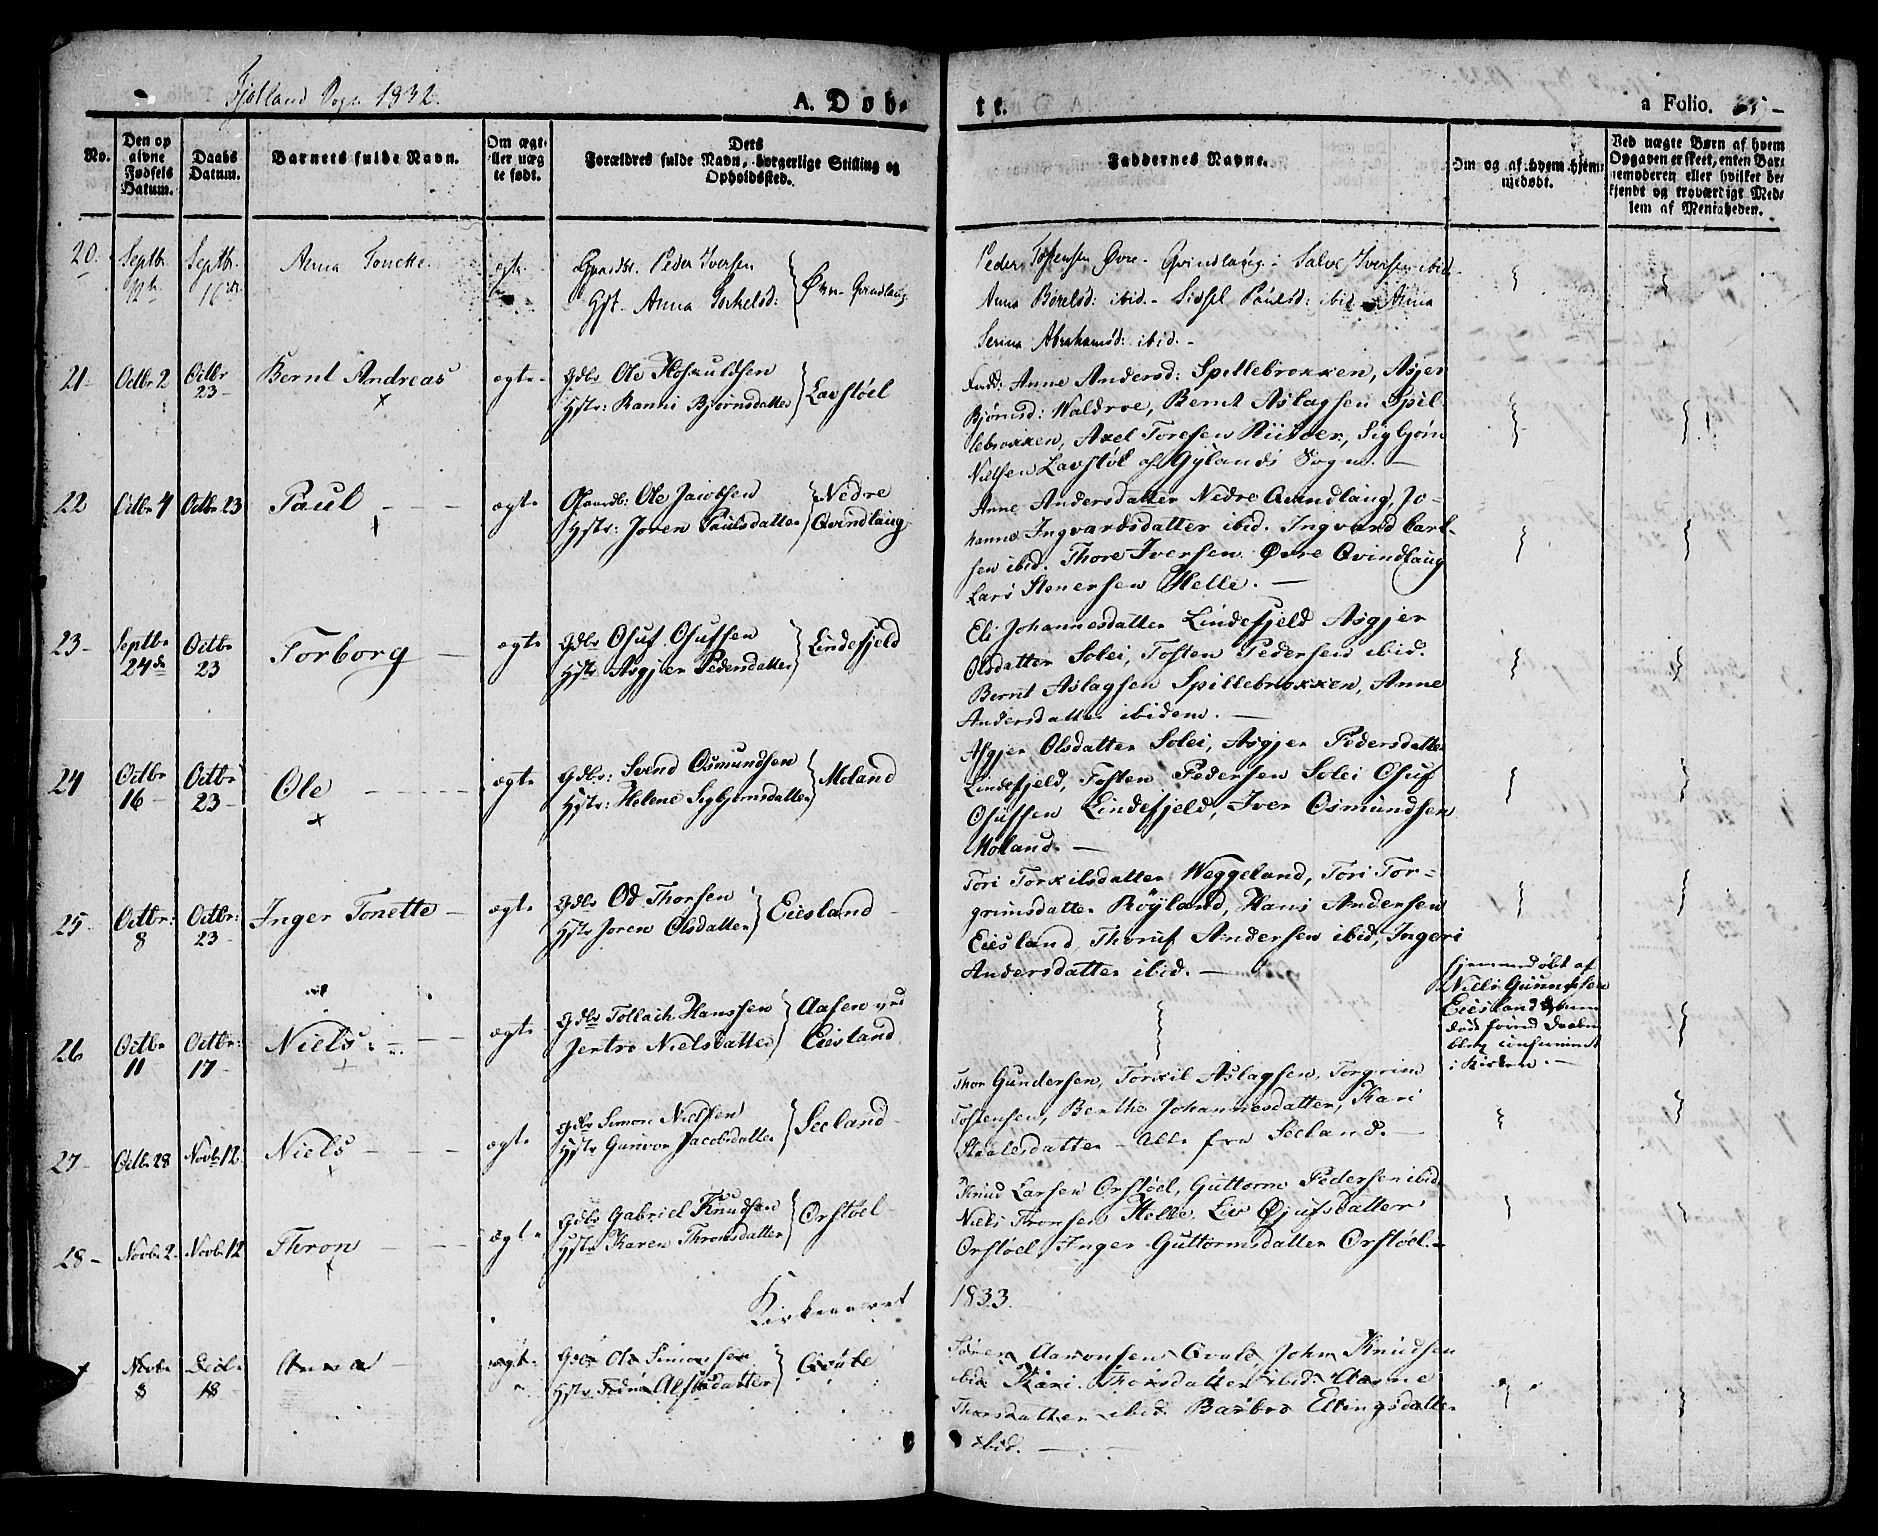 Fjotland Sogn 1832.
A. Døb-
tt.
a Folio. 65-
No.
Den op
givne
Fødsels
Datum.
Daabs
Datum.
Barnets fulde Navn.
Om ægt-
eller uæg
te født.
Dets
Forældres fulde Navn, borgerlige Stilling og
Opholdssted.
Faddernes Navne.
Om og af hvem hjem-
medøbt.
Ved uægte Børn af hvem
Opgaven er skeet, enten Bar-
nemoderen eller hvilket be-
kjendt og troværdigt Med-
lem af Menigheden.
20. Septbr. 12te Septbr. 16de Anna Tonette. ægte
Gaardbr. Peder Iversen
Hst. Anna Torkelsd: } Øvre Qvindlaug
Peder Tostensen Øvre Qvindlaug - Salve Iversen ibid.
Anna Børelsd: ibid. - Sidsel Paulsd: ibid - Anna
Serina Abrahamsd: ibid. -
21 - Octbr 2 Octbr 23 - Bernt Andreas ægte -
Gdbr Ole Hoskuldsen
Hstr: Ranni Bjørnsdatter } Lavstøel
Fadd: Anne Andersd: Spillebrokken, Asjer
Bjørnsd: Waldroe, Bernt Aslagsen Spil-
lebrokken, Axel Toresen, Sigbjørn
Nielsen Lavstøl af Gylands Sogn. -
22 Octbr 4 Octbr 23 Paul - - - ægte
Gaardb: Ole Jacobsen
Hstr: Joren Paulsdatter } Nedre Qvindlaug
Anne Andersdatter Nedre Qvindlaug, Jo-
hanne Ingvardsdatter ibid. Ingvard Carl-
sen ibid. Thore Iversen Øvre Qvindlaug
Lars Stenersen Helle. -
23 - Septbr 24de Octbr 23 Torborg - ægte
Gdbr Osuf Osufsen
Hstr Asgjer Pedersdatter } Lindefjeld
Eli Johannesdatter Lindefjeld Asgjer
Olsdatter Solei, Tosten Pedersen ibid.
Bernt Aslagsen Spillebrokken, Anne
Andersdatter ibidem. -
24 Octbr 16 - Octbr 23 - Ole - - - - ægte
Gdbr: Svend Osmundsen
Hstr: Helene Sigbjørnsdatter } Moland
Asgjer Olsdatter Solei, Asgjer Pedersdatter
Lindefjeld, Tosten Pedersen Solei Osuf
Osufsen Lindefjeld, Iver Osmundsen
Moland. -
25 - Octbr: 8 Octbr: 23 - Inger Tonette - ægte
Gdbr Od Thorsen
Hstr Joren Olsdatter } Eiesland -
Tori Torkilsdatter Weggeland, Tori Tor-
grimsdatter Røyland, Hans Andersen
Eiesland, Thoruf Andersen ibid, Ingeri
Andersdatter ibid. -
26 Octbr 11 Octbr: 17 - Niels: - - ægte
Gdbr Tollach Hanssen
Jertro Nielsdatter } Aasen ved Eiesland
hjemmedøbt af
Niels Gunnufsen
Eiesland
i Kirken. -
27 - Octbr 28 Novbr 12. Niels - - - ægte
Gdbr Simon Nielsen
Hstr Gunvor Jacobsdatter } Seeland -
Thor Gundersen, Torkil Aslagsen, Torgrim
Tostensen, Berthe Johannesdatter, Kari
Staalesdatter - Alle fra Seeland. -
28 - Novbr 2 - Novbr 12 Thron - - ægte
Gdbr Gabriel Knudsen
Hstr Karen Thronsdatter } Orstøel -
Knud Larsen Orstøel, Guttorm Pedersen ibid
Niels Tronsen Helle, Liv Øjufsdatter
Orstøel Inger Guttormsdatter Orstøel. -
Kirkeaaret
1833.
Novbr 8 Decbr 18 Anna - ægte
Gdbr Ole Simonsen
Hstr Alfsdatter } Qvale
Søren Aaronsen Qvale, John Knudsen
ibid Kari Thorsdatter ibid: Aasne
Thorsdatter ibid. Barbro Ellingsdatter
ibid. -